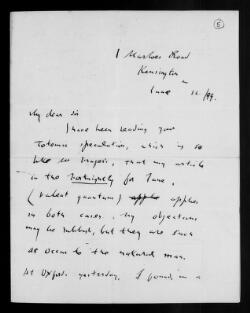 5
1 Marloes Road
Kensington
June 12/99.
My dear Sir
I have been reading your
Totemic speculation, which is so
like Mr Frazer's, that my article
in the Fortnightly for June,
(valeat quantum) applies
in both cases. My objections
may be rubbish, but they are such
as occur to the natural man.
At Oxford yesterday, I found in a